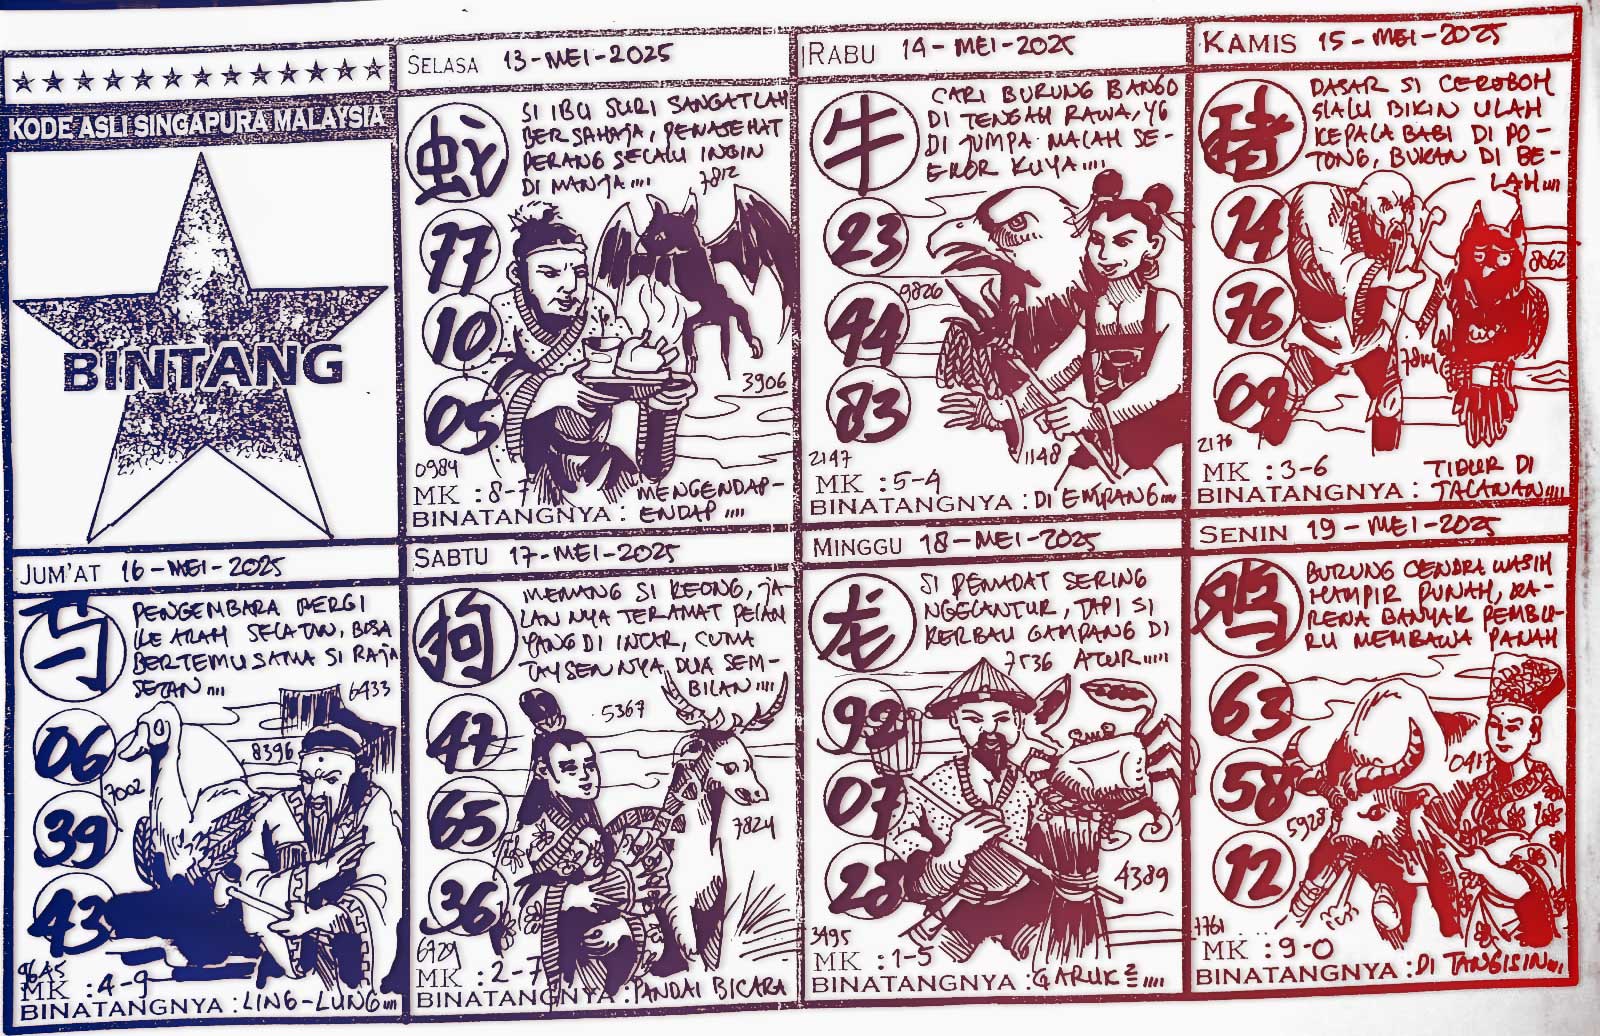 KODE ASLI SINGAPURA MALAYSIA
BINTANG
SELASA 13-MEI-2025
蛇
SI IBU SURI SANGATLAH
BERSAHAJA, PENASEHAT
PERANG SELALU INGIN
DI MANJA....
7812
77
10
05
3906
0984
MK : 8-7
BINATANGNYA : MENGENDAP-
ENDAP....
RABU 14-MEI-2025
牛
CARI BURUNG BANGO
DI TENGAH RAWA, YG
DI JUMPA MALAH SE-
EKOR KUYA....
23
9826
44
83
2147
1148
MK : 5-4
BINATANGNYA : DI EMPANG....
KAMIS 15-MEI-2025
猪
DASAR SI CEROBOH
SLALU BIKIN ULAH
KEPALA BABI DI PO-
TONG, BUKAN DI BE-
LAH....
74
8062
76
09
2176
MK : 3-6
BINATANGNYA : TIDUR DI
JALANAN....
JUM'AT 16-MEI-2025
PENGEMBARA PERGI
KE ARAH SELATAN, BISA
BERTEMU SAMA SI RAJA
SETAN....
6433
06
8396
7002
39
43
MK : 4-9
BINATANGNYA : LING-LUNG....
SABTU 17-MEI-2025
狗
MEMANG SI KEONG, JA-
LAN NYA TERAMAT PELAN
YANG DI INCAR, CUMA
TAYSEN NYA DUA SEM-
BILAN....
47
5367
65
7824
36
6729
MK : 2-7
BINATANGNYA : PANDAI BICARA
MINGGU 18-MEI-2025
龙
SI PEMADAT SERING
NGELANTUR, TAPI SI
KERBAU GAMPANG DI
7536 ATUR.....
92
07
28
4389
3495
MK : 1-5
BINATANGNYA : GARUK 2....
SENIN 19-MEI-2025
鸡
BURUNG CENDRAWASIH
HAMPIR PUNAH, KA-
RENA BANYAK PEMBU-
RU MEMBAWA PANAH
63
0417
58
5928
12
7761
MK : 9-0
BINATANGNYA : DI TANGISIN....